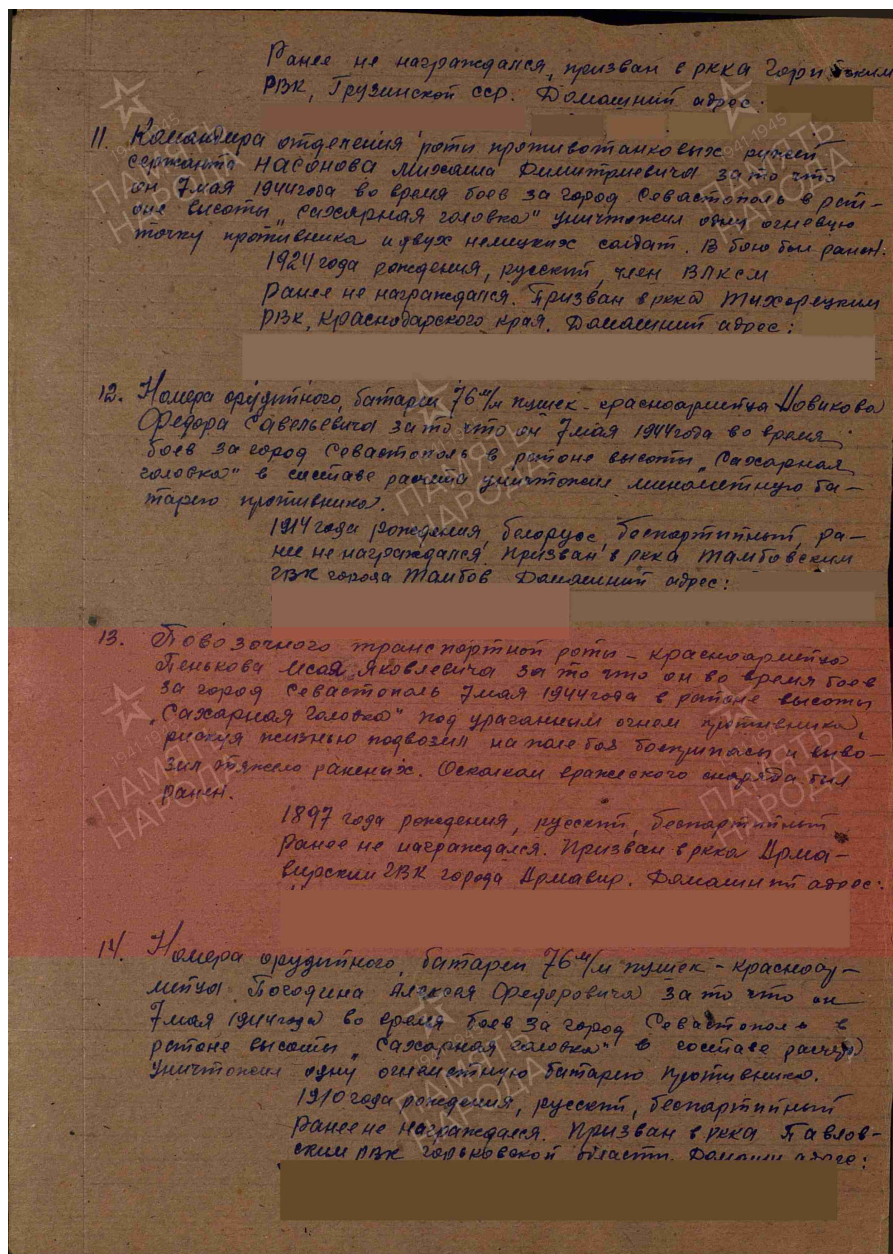 Ранее не награждался, призван в ркка Горийским
РВК, Грузинской сср. Домашний адрес:
11. Командира отделения роты противотанковых ружей
сержанта Насонова Михаила Димитриевича за то что
он 7 мая 1944 года во время боев за город Севастополь в рай-
оне высоты „Сахарная головка" уничтожил одну огневую
точку противника и двух немецких солдат. В бою был ранен.
1924 года рождения, русский, член ВЛКСМ
Ранее не награждался. Призван в ркка Тихорецким
РВК, Краснодарского края. Домашний адрес:
12. Номера орудийного, батареи 76 м/м пушек - красноармейца Новикова
Федора Савельевича за то что он 7 мая 1944 года во время
боев за город Севастополь в районе высоты „Сахарная
головка" в составе расчета уничтожил минометную ба-
тарею противника.
1914 года рождения, белорус, беспартийный, ра-
нее не награждался. Призван в ркка Тамбовским
ГВК города Тамбов Домашний адрес:
13. Повозочного транспортной роты - красноармейца
Пенькова Исая Яковлевича за то что он во время боев
за город Севастополь 7 мая 1944 года в районе высоты
„Сахарная головка" под ураганным огнем противника,
рискуя жизнью подвозил на поле боя боеприпасы и выво-
зил тяжело раненых. Осколком вражеского снаряда был
ранен.
1897 года рождения, русский, беспартийный
Ранее не награждался. Призван в ркка Арма-
вирским ГВК города Армавир. Домашний адрес:
14. Номера орудийного, батареи 76 м/м пушек - красноар-
мейца Погодина Алексея Федоровича за то что он
7 мая 1944 года во время боев за город Севастополь в
районе высоты „Сахарная головка" в составе расчета
уничтожил одну огнеметную батарею противника.
1910 года рождения, русский, беспартийный
Ранее не награждался. Призван в ркка Павлов-
ским РВК Горьковской области. Домашн адрес:
1941-1945
ПАМЯТЬ
НАРОДА